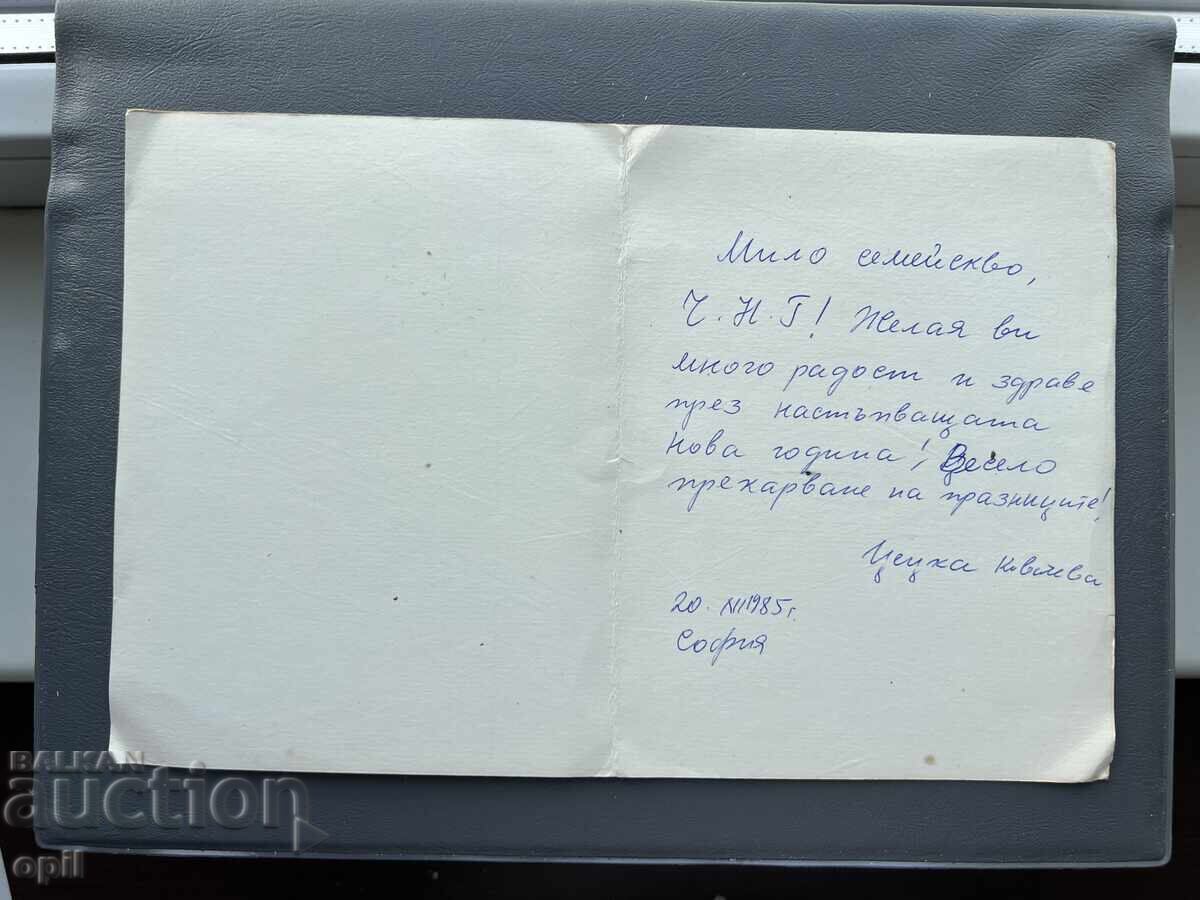 Мило семейство,
Ч.Н.Г! Желая ви
много радост и здраве
през настъпващата
Нова година! Весело
прекарване на празниците!
Цецка Ковачева
20. XII 1985 г.
София
BALKAN
auction
opil